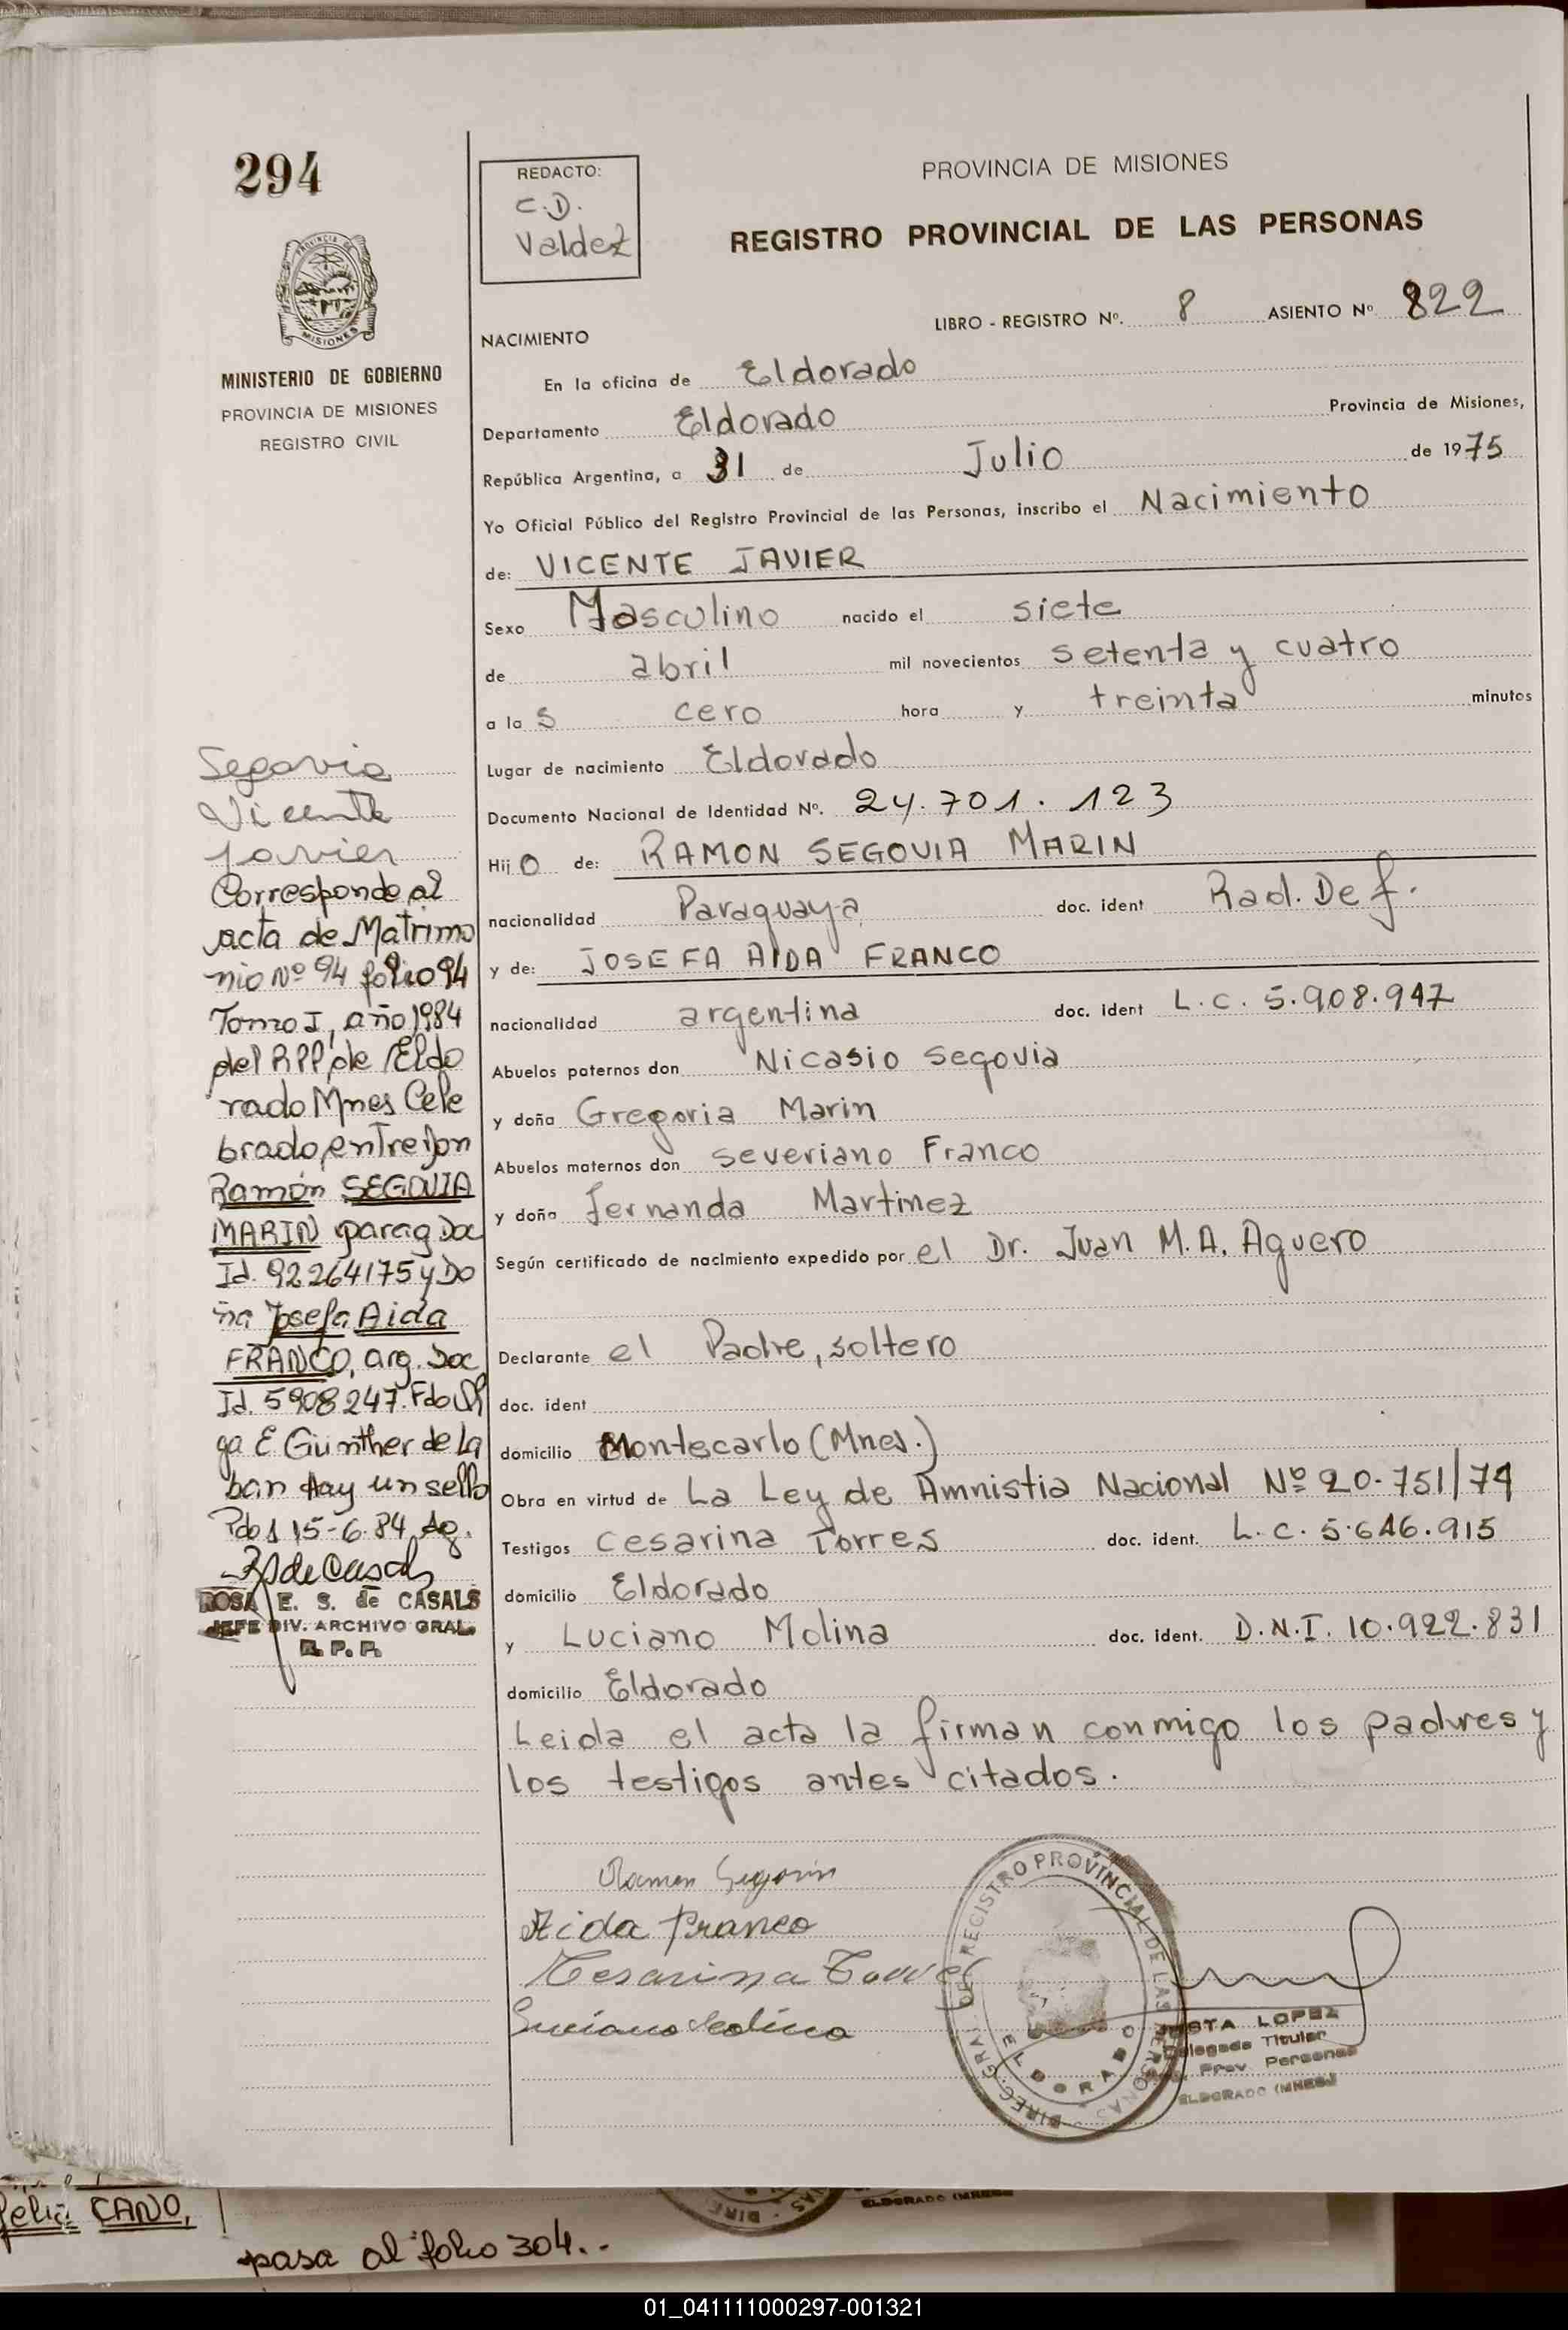 294
REDACTO:
C.D.
Valdez
PROVINCIA DE MISIONES
REGISTRO PROVINCIAL DE LAS PERSONAS
PROVINCIA DE
MISIONES
MINISTERIO DE GOBIERNO
PROVINCIA DE MISIONES
REGISTRO CIVIL
LIBRO - REGISTRO Nº. 8 ASIENTO Nº 822
NACIMIENTO
En la oficina de Eldorado
Departamento Eldorado Provincia de Misiones,
República Argentina, a 31 de Julio de 1975
Yo Oficial Público del Registro Provincial de las Personas, inscribo el Nacimiento
de: VICENTE JAVIER
Sexo Masculino nacido el siete
de abril mil novecientos setenta y cuatro
a la s cero hora y treinta minutos
Lugar de nacimiento Eldorado
Documento Nacional de Identidad Nº. 24.701.123
Hij o de: RAMON SEGOVIA MARIN
nacionalidad Paraguaya doc. ident Rad. Def.
y de: JOSEFA AIDA FRANCO
nacionalidad argentina doc. ident L.C. 5.908.947
Abuelos paternos don Nicasio Segovia
y doña Gregoria Marin
Abuelos maternos don Severiano Franco
y doña Fernanda Martinez
Según certificado de nacimiento expedido por el Dr. Juan M.A. Aguero
Declarante el Padre, soltero
doc. ident
domicilio Montecarlo (Mnes.)
Obra en virtud de La Ley de Amnistia Nacional Nº 20.751/74
Testigos Cesarina Torres doc. ident. L.C. 5.646.915
domicilio Eldorado
y Luciano Molina doc. ident. D.N.I. 10.922.831
domicilio Eldorado
Leida el acta la firman conmigo los padres y
los testigos antes citados.
Segovia
Vicente
Javier
Corresponde al
acta de Matrimo
nio Nº 94 folio 94
Tomo I, año 1984
del RPP de Eldo
rado Mnes Cele
brado entre Don
Ramón SEGOVIA
MARIN parag Doc
Id. 92264175 y Do
ña Josefa Aida
FRANCO, arg. Doc
Id. 5908247. Fdo
ga E Günther de La
ban Hay un sello
Pdas 15-6-84 Ag.
ROSA E. S. de CASALS
JEFE DIV. ARCHIVO GRAL.
R. P. P.
Ramon Segovia
Aida Franco
Cesarina Torres
Luciano Molina
DIREC. GRAL. DEL REGISTRO PROVINCIAL DE LAS PERSONAS
ELDORADO
JUSTA LOPEZ
Delegada Titular
Prov. Personas
ELDORADO (MNES.)
Felix CANO,
ELDORADO (MNES.)
pasa al folio 304..
01_041111000297-001321